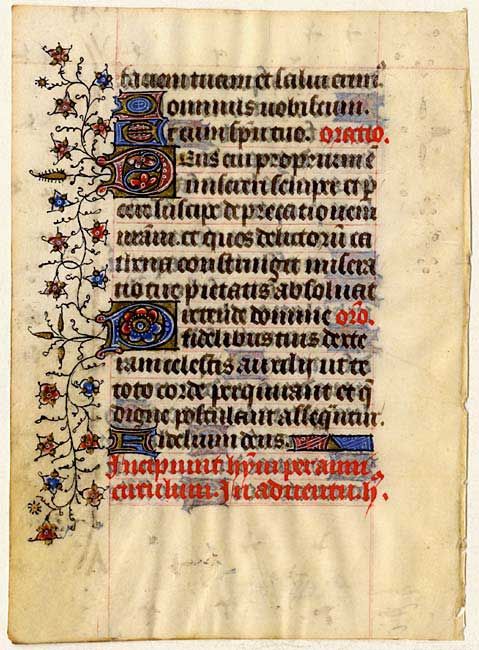 faciem tuam et salui erim᷒
Dominus uobiscum.
Et cum spiritu tuo. oratio.
Deus cui proprium ē
misereri semper et p
cere suscipe deprecationem
nrām. et ques delictorū ca
thena constringit misera
tio tue pietatis absoluat
Pretende domine orō.
fidelibus tuis dexte
ram celestis auxilij ut te
toto corde perquirant et q̄
digne postulant assequtur.
Fidelium deus.
Incipiunt hymni per anni
circulum. In aduentu h.